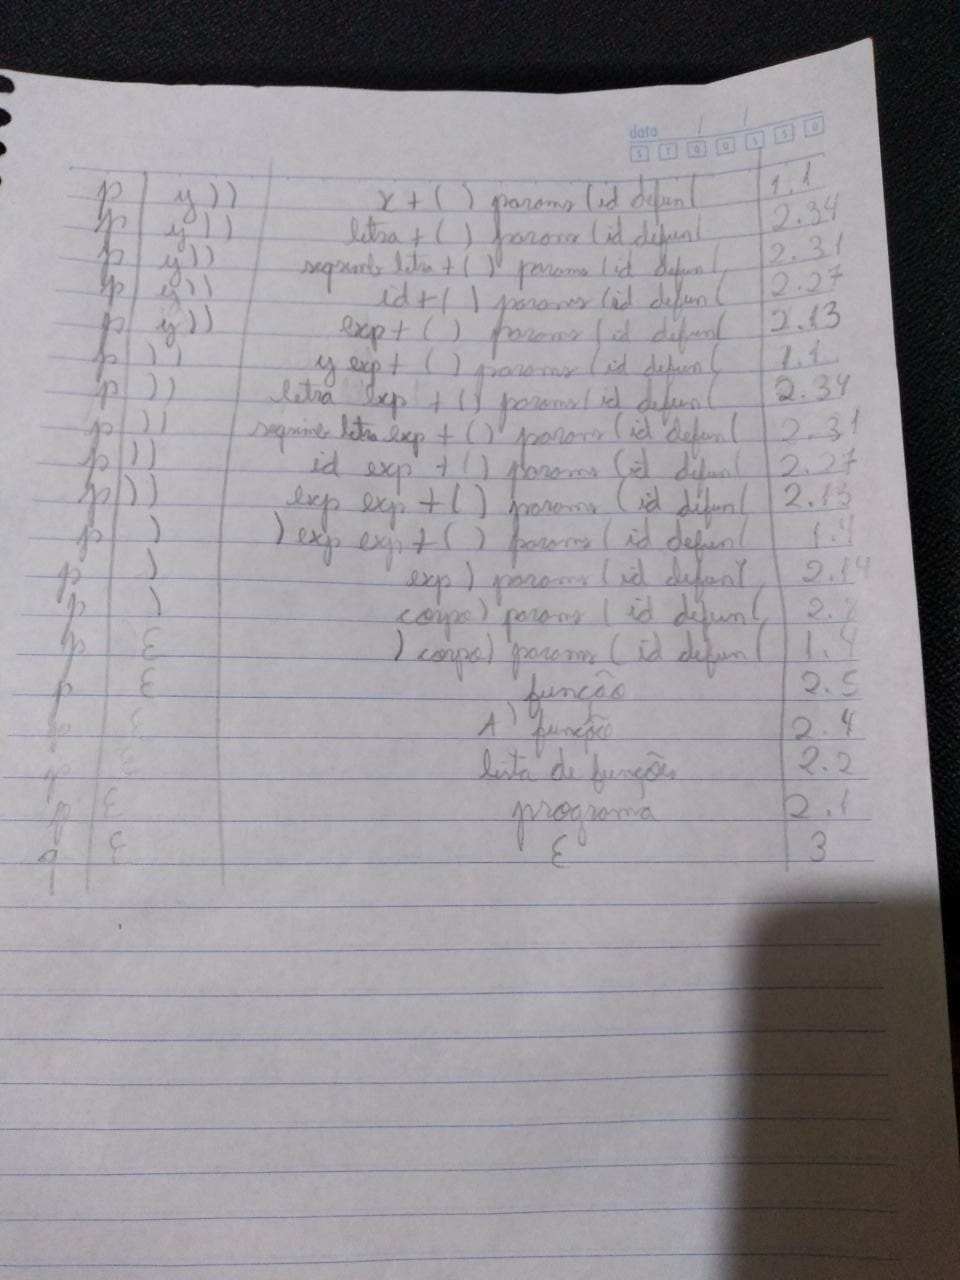 data / /
S T Q Q S S D
p y)) x + ( ) params (id defun( 1.1
p y)) letra + ( ) params (id defun( 2.34
p y)) letra + ( ) params (id defun( 2.31
p y)) id + ( ) params (id defun( 2.27
p y)) exp + ( ) params (id defun( 2.13
p )) y exp + ( ) params (id defun( 1.1
p )) letra exp + ( ) params (id defun( 2.34
p )) letra exp + ( ) params (id defun( 2.31
p )) id exp + ( ) params (id defun( 2.27
p )) exp exp + ( ) params (id defun( 2.13
p ) ) exp exp + ( ) params (id defun( 1.4
p ) exp ) params (id defun( 2.14
p ) corpo ) params (id defun(
p ε ) corpo ) params (id defun( 1.4
p ε função 2.5
p ε função 2.4
p ε lista de funções 2.2
p ε programa 2.1
q ε ε 3